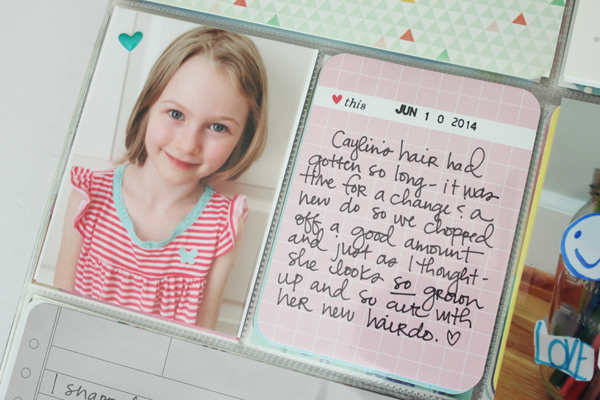 ♥ this JUN 1 0 2014
Caylin's hair had
gotten so long - it was
time for a change & a
new do so we chopped
off a good amount
and just as I thought -
she looks so grown
up and so cute with
her new hairdo. ♡
LOVE
I